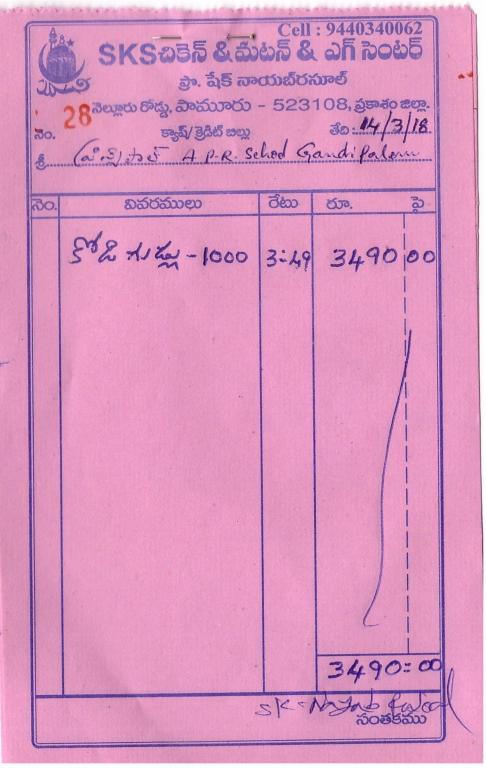 Cell : 9440340062
SKS చికెన్ & మటన్ & ఎగ్ సెంటర్
ప్రొ. షేక్ నాయబ్‌రసూల్
నెల్లూరు రోడ్డు, పామూరు - 523108, ప్రకాశం జిల్లా.
నెం. 28 క్యాష్/క్రెడిట్ బిల్లు తేది: 14/3/18
శ్రీ ప్రిన్సిపాల్ A P.R. School Gandipalem
నెం. వివరములు రేటు రూ. పై
కోడి గుడ్లు - 1000 3=49 3490 00
3490=00
SK. Nayab Rasool
సంతకము